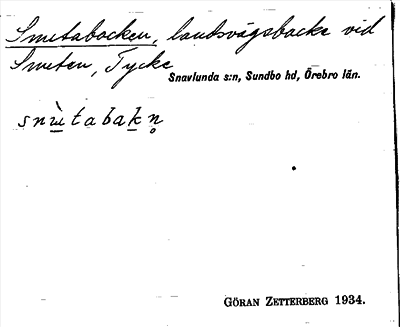 Smetabacken, landsvägsbacke vid
Smeten, Tycke
Snavlunda s:n, Sundbo hd, Örebro län.
GÖRAN ZETTERBERG 1934.